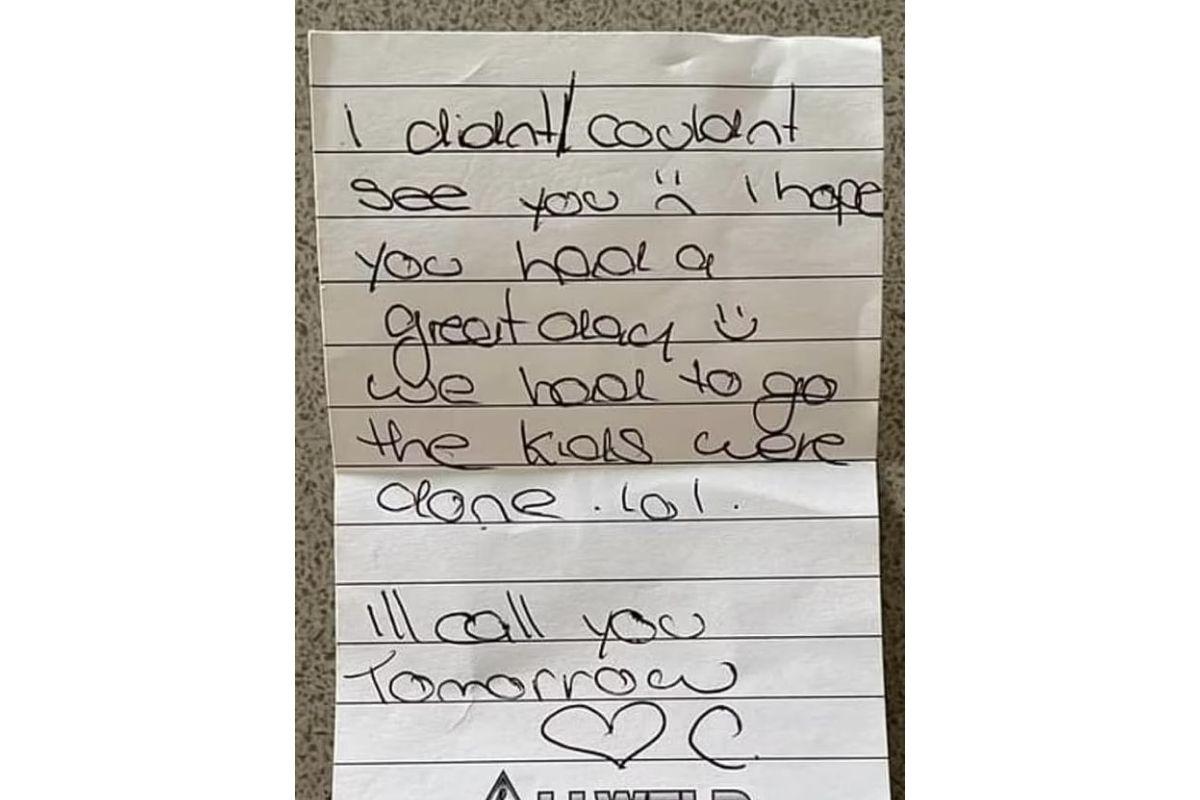 I didnt/couldnt
see you :( I hope
you had a
great day :)
we had to go
the kids were
done . lol .
Ill call you
Tomorrow
♡ C